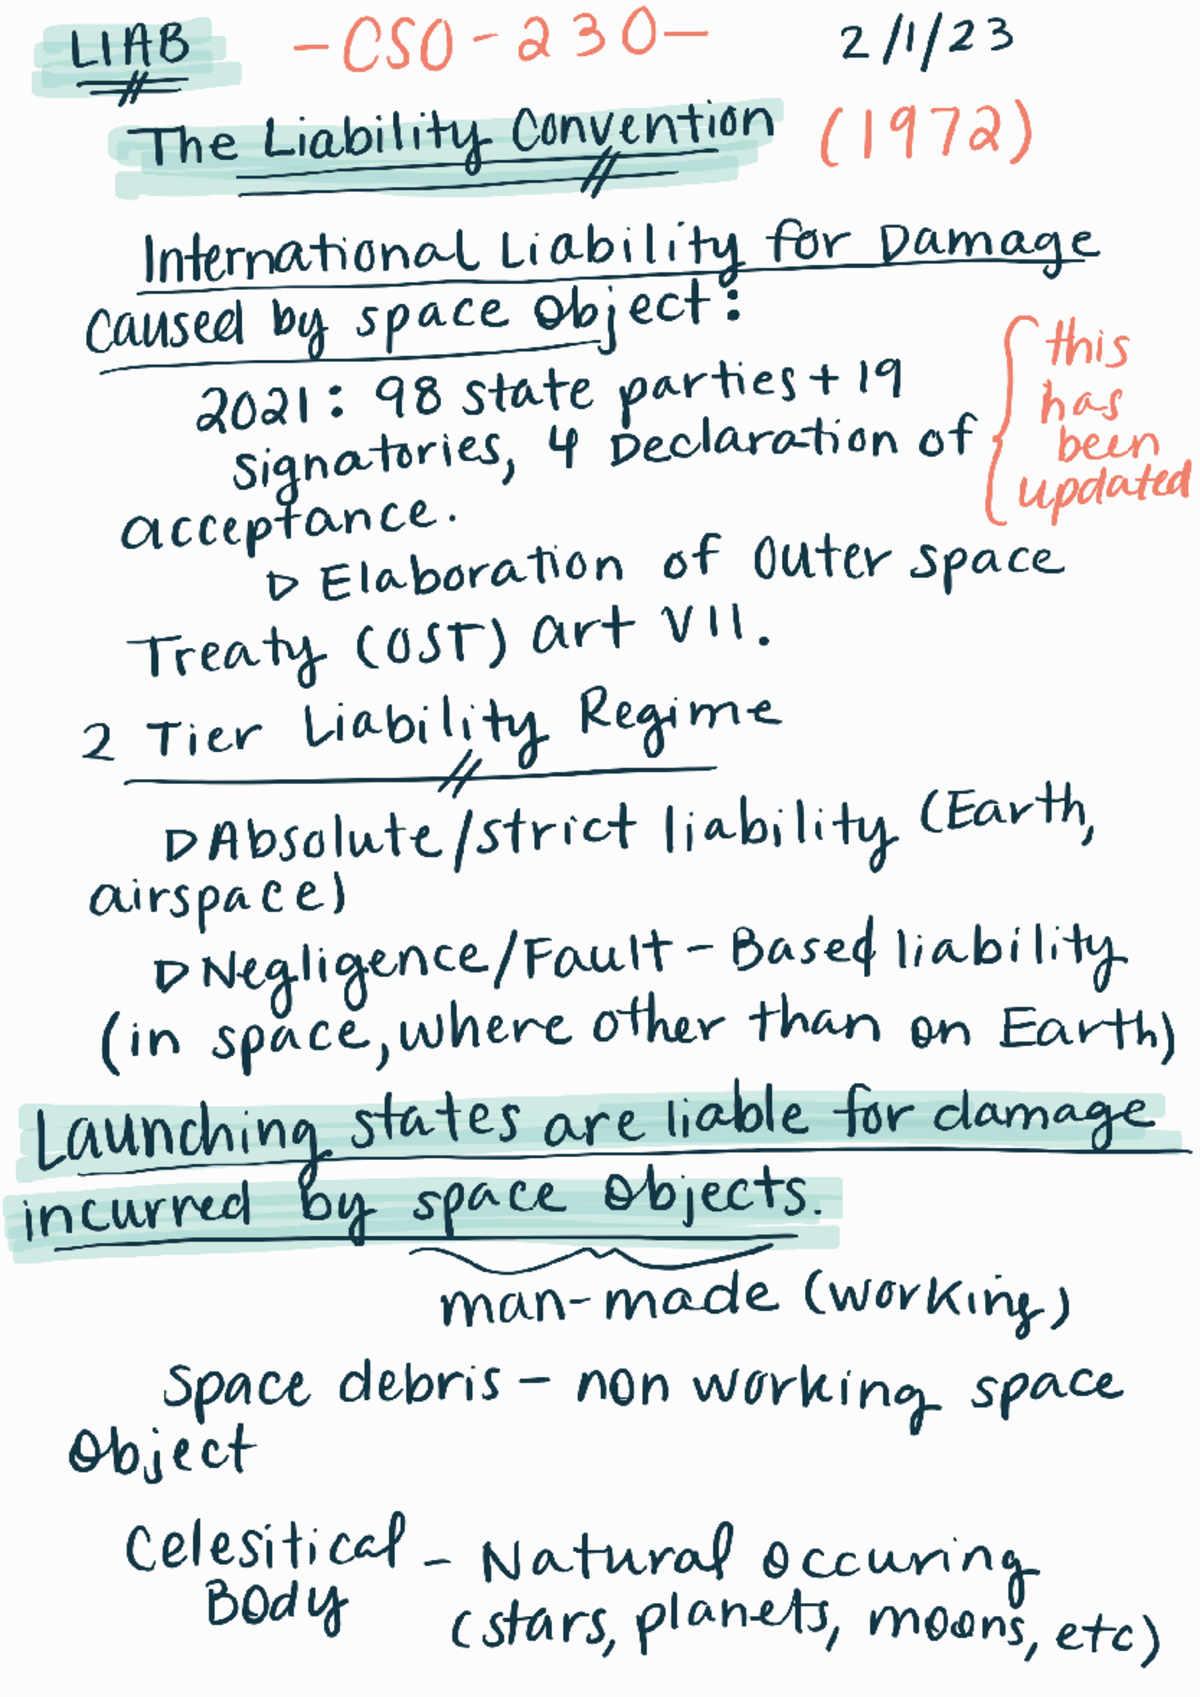 LIAB -CSO-230- 2/1/23
The Liability Convention (1972)
International Liability for Damage
caused by space object:
2021: 98 state parties + 19
signatories, 4 Declaration of
acceptance.
{ this
has
been
updated
▷ Elaboration of Outer space
Treaty (OST) art VII.
2 Tier Liability Regime
▷ Absolute/strict liability (Earth,
airspace)
▷ Negligence/Fault-Based liability
(in space, where other than on Earth)
Launching states are liable for damage
incurred by space objects.
man-made (working)
Space debris - non working space
object
Celesitical - Natural occuring
Body (stars, planets, moons, etc)